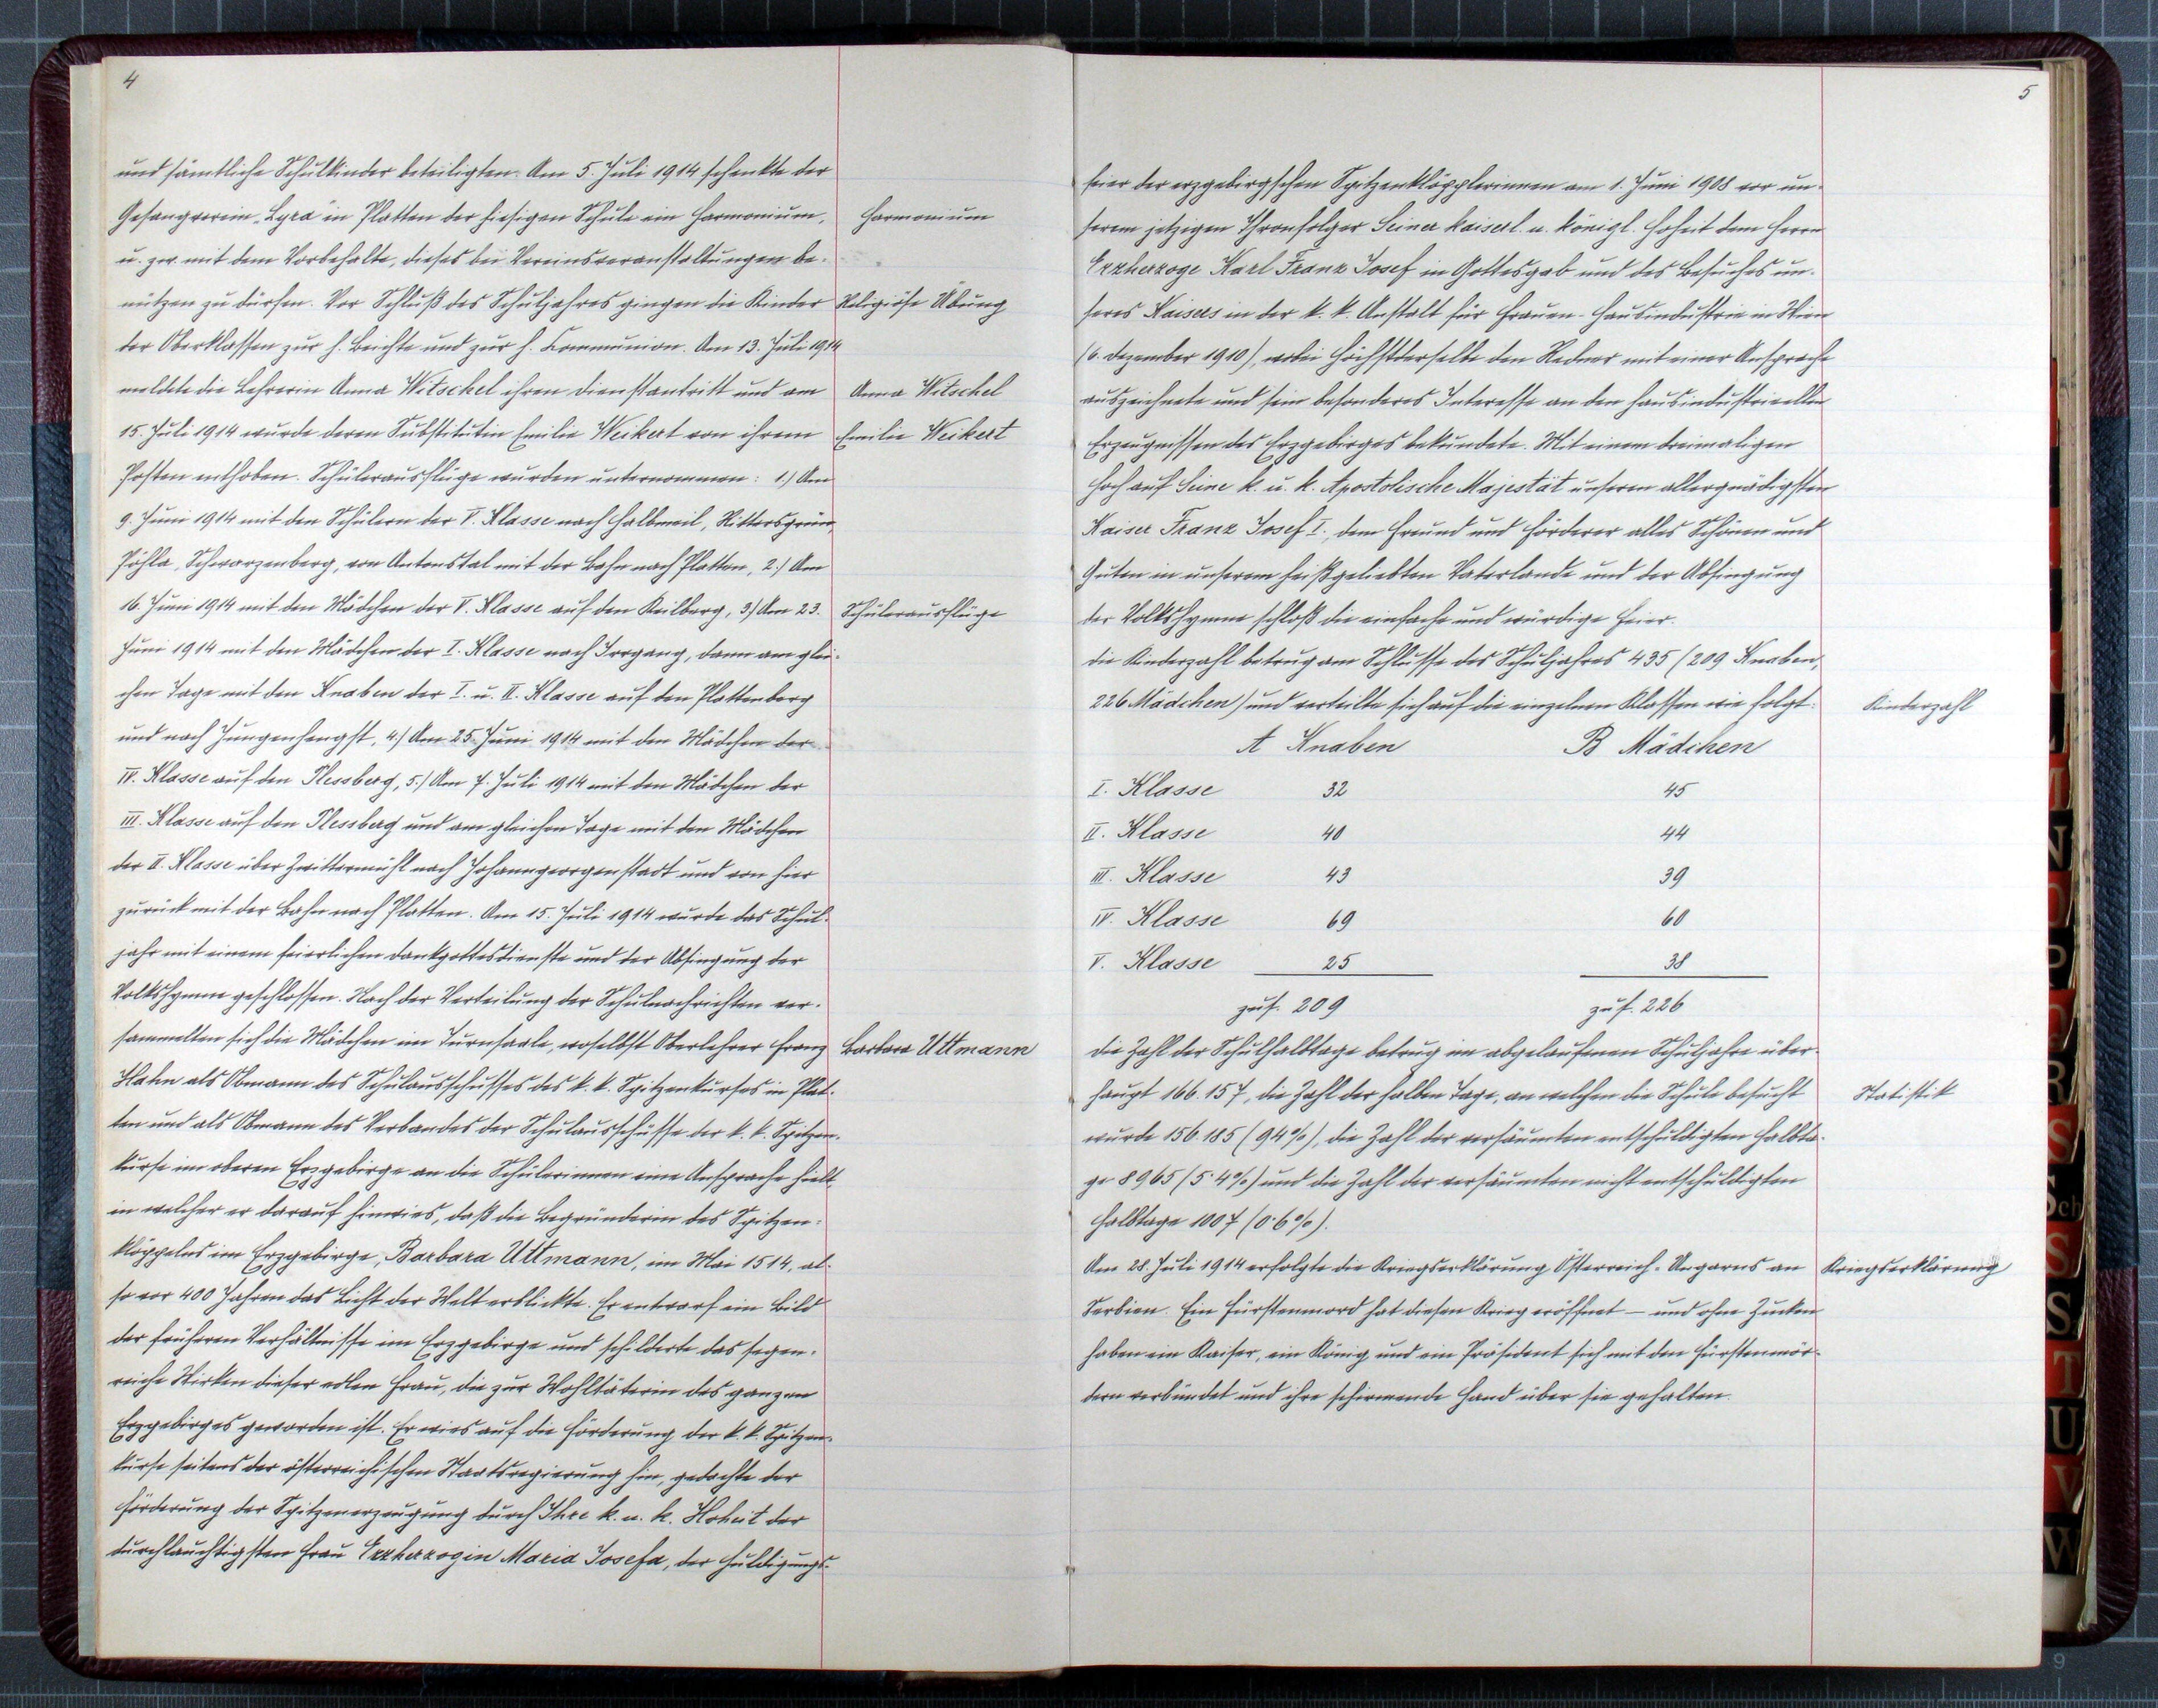 4
und sämtliche Schulkinder beteiligten. Am 5. Juli 1914 schenkte der
Gesangverein „Lyra" in Platten der hiesigen Schule ein Harmonium,
Harmonium
u. zw. mit dem Vorbehalte, dieses bei Vereinsveranstaltungen be-
nützen zu dürfen. Vor Schluß des Schuljahres gingen die Kinder
Religiöse Übung
der Oberklassen zur h. Beichte und zur h. Kommunion. Am 13. Juli 1914
meldete die Lehrerin Anna Witschel ihren Dienstantritt und am
Anna Witschel
15. Juli 1914 wurde deren Substitutin Emilie Weikert von ihrem
Emilie Weikert
Posten enthoben. Schülerausflüge wurden unternommen: 1.) Am
9. Juni 1914 mit den Schülern der V. Klasse nach Halbmeil, Rittersgrün,
Pöhla, Schwarzenberg, von Antonstal mit der Bahn nach Platten, 2.) Am
16. Juni 1914 mit den Mädchen der V. Klasse auf den Keilberg, 3.) Am 23.
Schülerausflüge
Juni 1914 mit den Mädchen der I. Klasse nach Irrgang, dann am glei-
chen Tage mit den Knaben der I. u. II. Klasse auf den Plattenberg
und nach Jungenhengst, 4.) Am 25. Juni 1914 mit den Mädchen der
IV. Klasse auf den Plessberg, 5.) Am 7. Juli 1914 mit den Mädchen der
III. Klasse auf den Plessberg und am gleichen Tage mit den Mädchen
der II. Klasse über Zwittermühl nach Johanngeorgenstadt und von hier
zurück mit der Bahn nach Platten. Am 15. Juli 1914 wurde das Schul-
jahr mit einem feierlichen Dankgottesdienste und der Absingung der
Volkshymne geschlossen. Nach der Verteilung der Schulnachrichten ver-
sammelten sich die Mädchen im Turnsaale, woselbst Oberlehrer Franz
Barbara Uttmann
Hahn als Obmann des Schulausschusses des k. k. Spitzenkurses in Plat-
ten und als Obmann des Verbandes der Schulausschüsse der k. k. Spitzen-
kurse im oberen Erzgebirge an die Schülerinnen eine Ansprache hielt,
in welcher er darauf hinwies, daß die Begründerin des Spitzen-
klöppelns im Erzgebirge, Barbara Uttmann, im Mai 1514, al-
so vor 400 Jahren das Licht der Welt erblickte. Er entwarf ein Bild
der früheren Verhältnisse im Erzgebirge und schilderte das segen-
reiche Wirken dieser edlen Frau, die zur Wohltäterin des ganzen
Erzgebirges geworden ist. Er wies auf die Förderung der k. k. Spitzen-
kurse seitens der österreichischen Staatsregierung hin, gedachte der
Förderung der Spitzenerzeugung durch Ihre k. u. k. Hoheit der
durchlauchtigsten Frau Erzherzogin Maria Josefa, der Huldigungs-
5
feier der erzgebirgschen Spitzenklöpplerinnen am 1. Juni 1908 vor un-
serem jetzigen Thronfolger Seiner kaiserl. u. königl. Hoheit dem Herrn
Erzherzoge Karl Franz Josef in Gottesgab und des Besuches un-
seres Kaisers in der k. k. Anstalt für Frauen-Hausindustrie in Wien
(6. Dezember 1910), wobei Höchstderselbe den Redner mit einer Ansprache
auszeichnete und sein besonderes Interesse an den hausindustriellen
Erzeugnissen des Erzgebirges bekundete. Mit einem dreimaligen
Hoch auf Seine k. u. k. Apostolische Majestät unseren allergnädigsten
Kaiser Franz Josef I., dem Freund und Förderer alles Schönen und
Guten in unserem heißgeliebten Vaterlande und der Absingung
der Volkshymne schloß die einfache und würdige Feier.
Die Kinderzahl betrug am Schlusse des Schuljahres 435 (209 Knaben,
226 Mädchen) und verteilte sich auf die einzelnen Klassen wie folgt:
Kinderzahl
A Knaben B Mädchen
I. Klasse 32 45
II. Klasse 40 44
III. Klasse 43 39
IV. Klasse 69 60
V. Klasse 25 38
zus. 209 zus. 226
Die Zahl der Schulhalbtage betrug im abgelaufenen Schuljahre über-
haupt 166.157, die Zahl der halben Tage, an welchen die Schule besucht
Statistik
wurde 156.185 (94%), die Zahl der versäumten entschuldigten Halbta-
ge 8965 (5·4%) und die Zahl der versäumten nicht entschuldigten
Halbtage 1007 (0·6%).
Am 28. Juli 1914 erfolgte die Kriegserklärung Österreich-Ungarns an
Kriegserklärung
Serbien. Ein Fürstenmord hat diesen Krieg eröffnet — und ohne Zucken
haben ein Kaiser, ein König und ein Präsident sich mit den Fürstenmör-
dern verbündet und ihre schirmende Hand über sie gehalten.
N
O
P
R
S
Sch
S
S
T
U
V
W
9